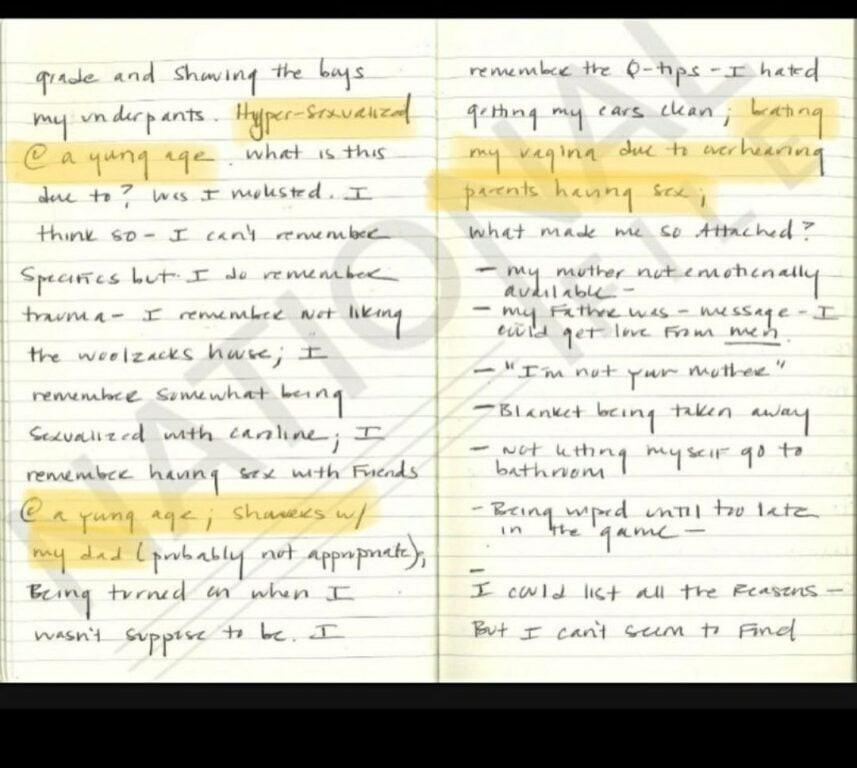 grade and showing the boys
my underpants. Hyper-sexualized
@ a yung age. What is this
due to? Was I molested. I
think so - I can't remember
specifics but I do remember
trauma - I remember not liking
the woolzacks house; I
remember somewhat being
sexualized with caroline; I
remember having sex with Friends
@ a yung age; showers w/
my dad (probably not appropriate);
Being turned on when I
wasn't suppose to be. I
remember the Q-tips - I hated
getting my ears clean; beating
my vagina due to overhearing
parents having sex;
what made me so Attached?
- my mother not emotionally
available -
- my Father was - message - I
could get love From men
- "I'm not your mother"
- Blanket being taken away
- not letting myself go to
bathroom
- Being wiped until too late
in the game -
-
I could list all the Reasons -
But I can't seem to Find
NATIONAL
FILE